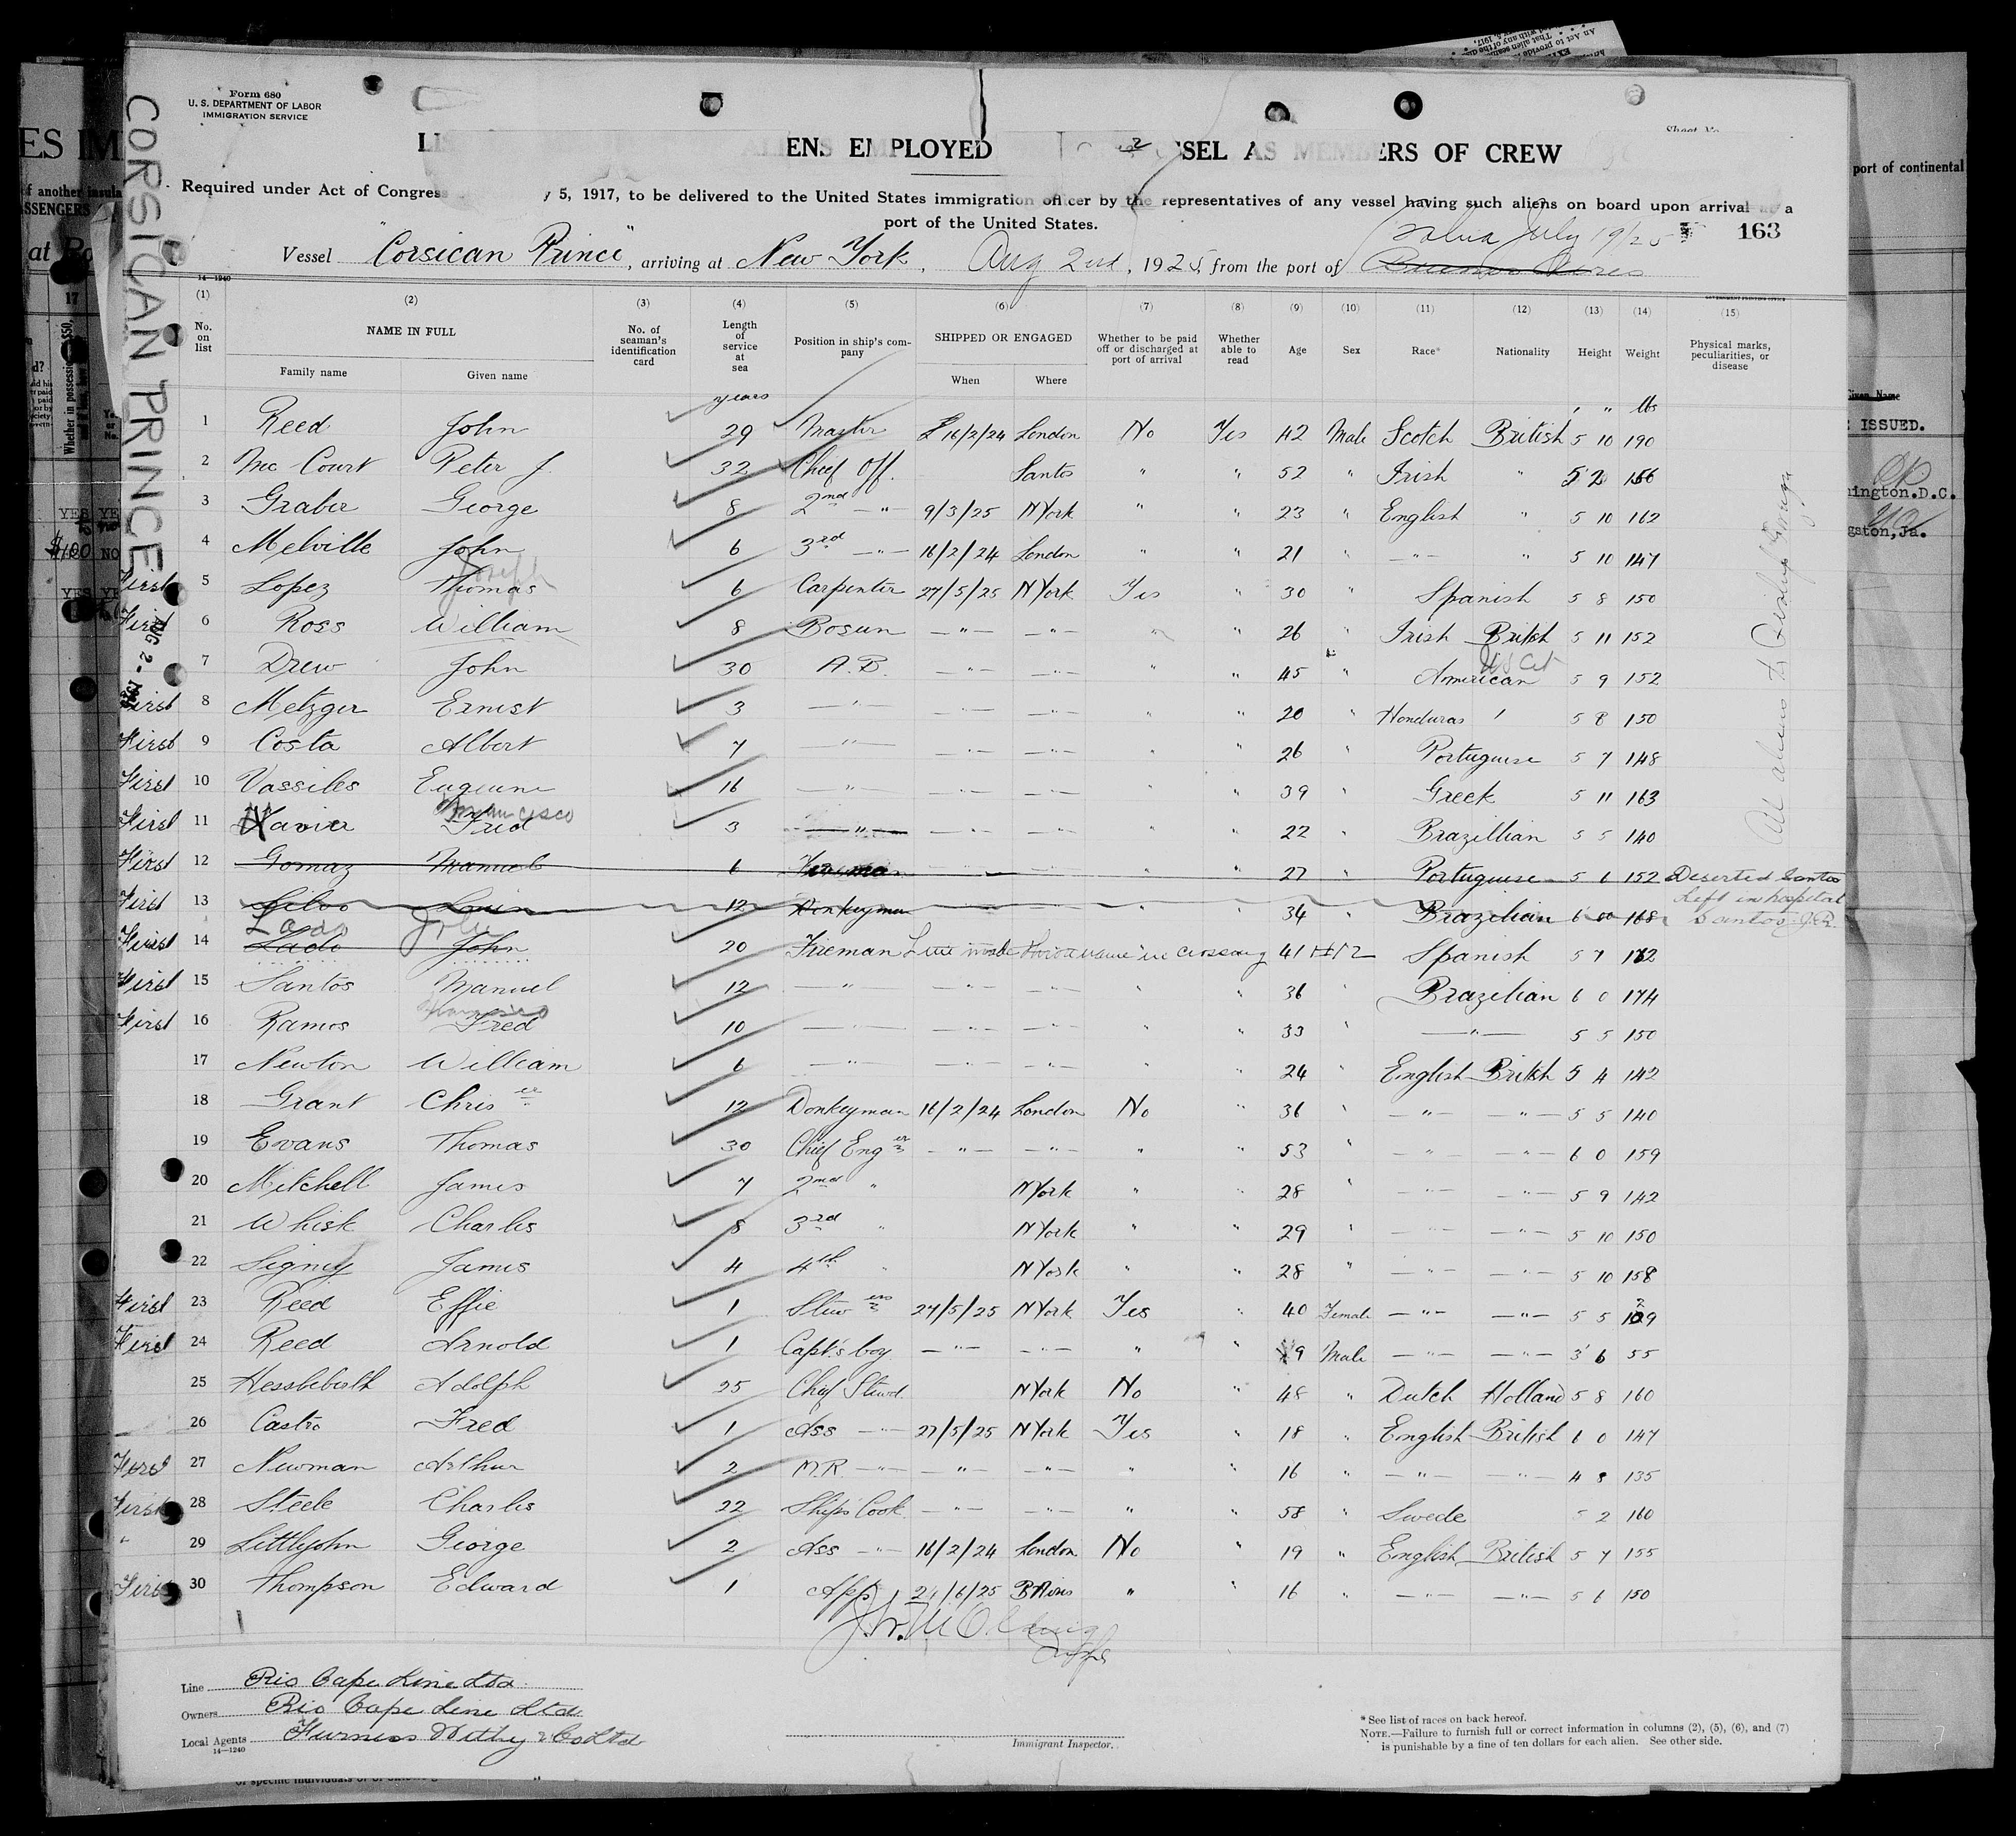 Form 680
U. S. DEPARTMENT OF LABOR
IMMIGRATION SERVICE
CORSICAN PRINCE
ALIENS EMPLOYED VESSEL AS MEMBERS OF CREW
Required under Act of Congress 5, 1917, to be delivered to the United States immigration officer by the representatives of any vessel having such aliens on board upon arrival at a
port of the United States.
Bahia July 19/25 163
Vessel "Corsican Prince", arriving at New York, Aug 2nd, 1925, from the port of Buenos Aires
14—1240
(1) (2) (3) (4) (5) (6) (7) (8) (9) (10) (11) (12) (13) (14) (15)
No. on list NAME IN FULL Family name Given name No. of seaman's identification card Length of service at sea Position in ship's company SHIPPED OR ENGAGED When Where Whether to be paid off or discharged at port of arrival Whether able to read Age Sex Race* Nationality Height Weight Physical marks, peculiarities, or disease
years ' " lbs
1 Reed John 29 Master 16/2/24 London No Yes 42 Male Scotch British 5 10 190
2 Mc Court Peter J. 32 Chief Off. Santos " " 52 " Irish " 5 166
3 Graber George 8 2nd — " — 9/3/25 N York " " 23 " English " 5 10 162
4 Melville John 6 3rd — " — 16/2/24 London " " 21 " — " — " 5 10 147
Joseph
First 5 Lopez Thomas 6 Carpenter 27/5/25 N York Yes " 30 " Spanish 5 8 150
First 6 Ross William 8 Bosun — " — — " — " " 26 " Irish British 5 11 152
US Cit
7 Drew John 30 A.B. — " — — " — " " 45 " American 5 9 152
First 8 Metzger Ernest 3 — " — — " — — " — " " 20 " Honduras 5 8 150
First 9 Costa Albert 7 — " — — " — — " — " " 26 " Portuguese 5 7 148
First 10 Vassiles Euguene 16 — " — — " — — " — " " 39 " Greek 5 11 163
Francisco
First 11 Xavier Fred 3 — " — — " — — " — " " 22 " Brazillian 5 5 140
First 12 Gomaz Manuel 6 Fireman — " — — " — " " 27 " Portuguese 5 6 152 Deserted Santos
Left in hospital
First 13 Silvo Luin 12 Donkeyman — " — — " — " " 34 " Brazilian 6 00 168 Santos J.R.
Lado
First 14 Lado John 20 Fireman 41 Spanish 5 7 172
First 15 Santos Manuel 12 — " — — " — — " — " " 36 " Brazilian 6 0 174
First 16 Ramos Fred 10 — " — — " — — " — " " 33 " — " — 5 5 150
17 Newton William 6 — " — — " — — " — " " 24 " English British 5 4 142
18 Grant Chriser 12 Donkeyman 16/2/24 London No " 36 " — " — — " — 5 5 140
19 Evans Thomas 30 Chief Enger — " — — " — " " 53 " — " — — " — 6 0 159
20 Mitchell James 7 2nd " N York " " 28 " — " — — " — 5 9 142
21 Whisk Charles 8 3rd " N York " " 29 " — " — — " — 5 10 150
22 Signey James 4 4th " N York " " 28 " — " — — " — 5 10 158
First 23 Reed Effie 1 Stewess 27/5/25 N York Yes " 40 Female — " — — " — 5 5 129
First 24 Reed Arnold 1 Capt's boy — " — — " — " " 9 Male — " — — " — 3 6 55
25 Hesslebirth Adolph 25 Chief Stewd N York No " 48 " Dutch Holland 5 8 160
26 Castro Fred 1 Ass — " — 27/5/25 N York Yes " 18 " English British 6 0 147
First 27 Newman Arthur 2 M.R. — " — — " — — " — " " 16 " — " — — " — 4 8 135
First 28 Steele Charles 22 Ships Cook — " — — " — " " 58 " Swede 5 2 160
" 29 Littlejohn George 2 Ass — " — 16/2/24 London No " 19 " English British 5 7 155
First 30 Thompson Edward 1 App 24/6/25 B Aires " " 16 " — " — — " — 5 6 150
Line Rio Cape Line Ltd
Owners Rio Cape Line Ltd
Local Agents Furness Withy & Co Ltd
14—1240
Immigrant Inspector.
* See list of races on back hereof.
NOTE.—Failure to furnish full or correct information in columns (2), (5), (6), and (7)
is punishable by a fine of ten dollars for each alien. See other side.
port of continental
Given Name
ISSUED.
gston, Ja.